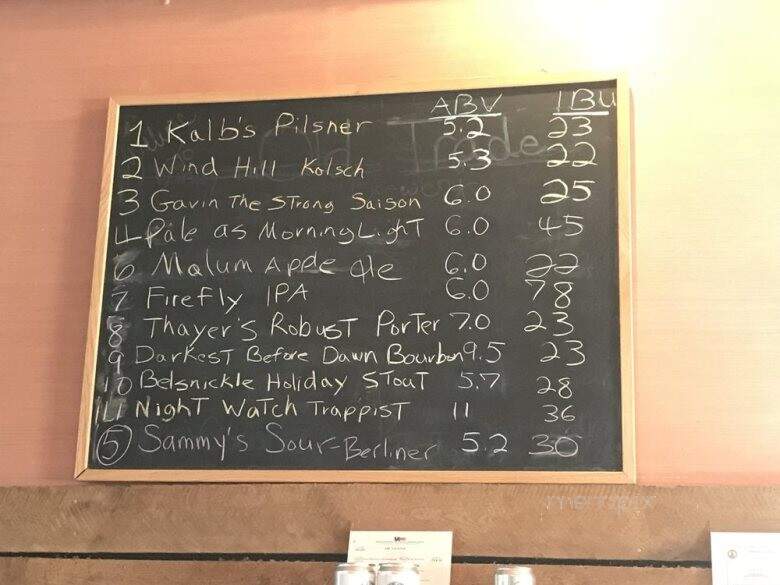 ABV IBU
1 Kalb's Pilsner 5.2 23
2 Wind Hill Kolsch 5.3 22
3 Gavin The STrong Saison 6.0 25
4 Pale as Morning LighT 6.0 45
6 Malum Apple Ale 6.0 22
7 Firefly IPA 6.0 78
8 Thayer's RobusT PorTer 7.0 23
9 DarkesT Before Dawn Bourbon 9.5 23
10 Belsnickle Holiday STouT 5.7 28
11 NighT WaTch TrappisT 11 36
5 Sammy's Sour-Berliner 5.2 30